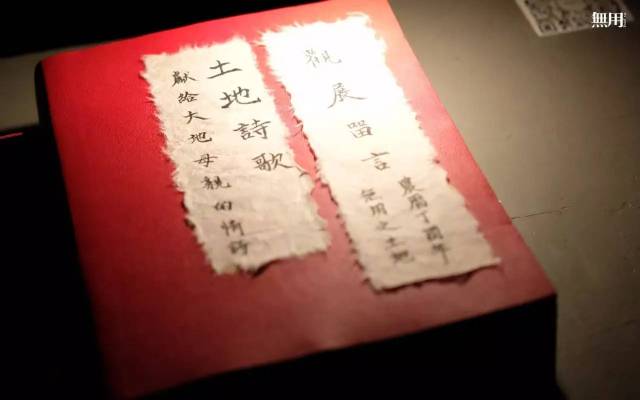 無用
觀展留言
農曆丁酉年
無用之土地
土地詩歌
獻給大地母親的情詩